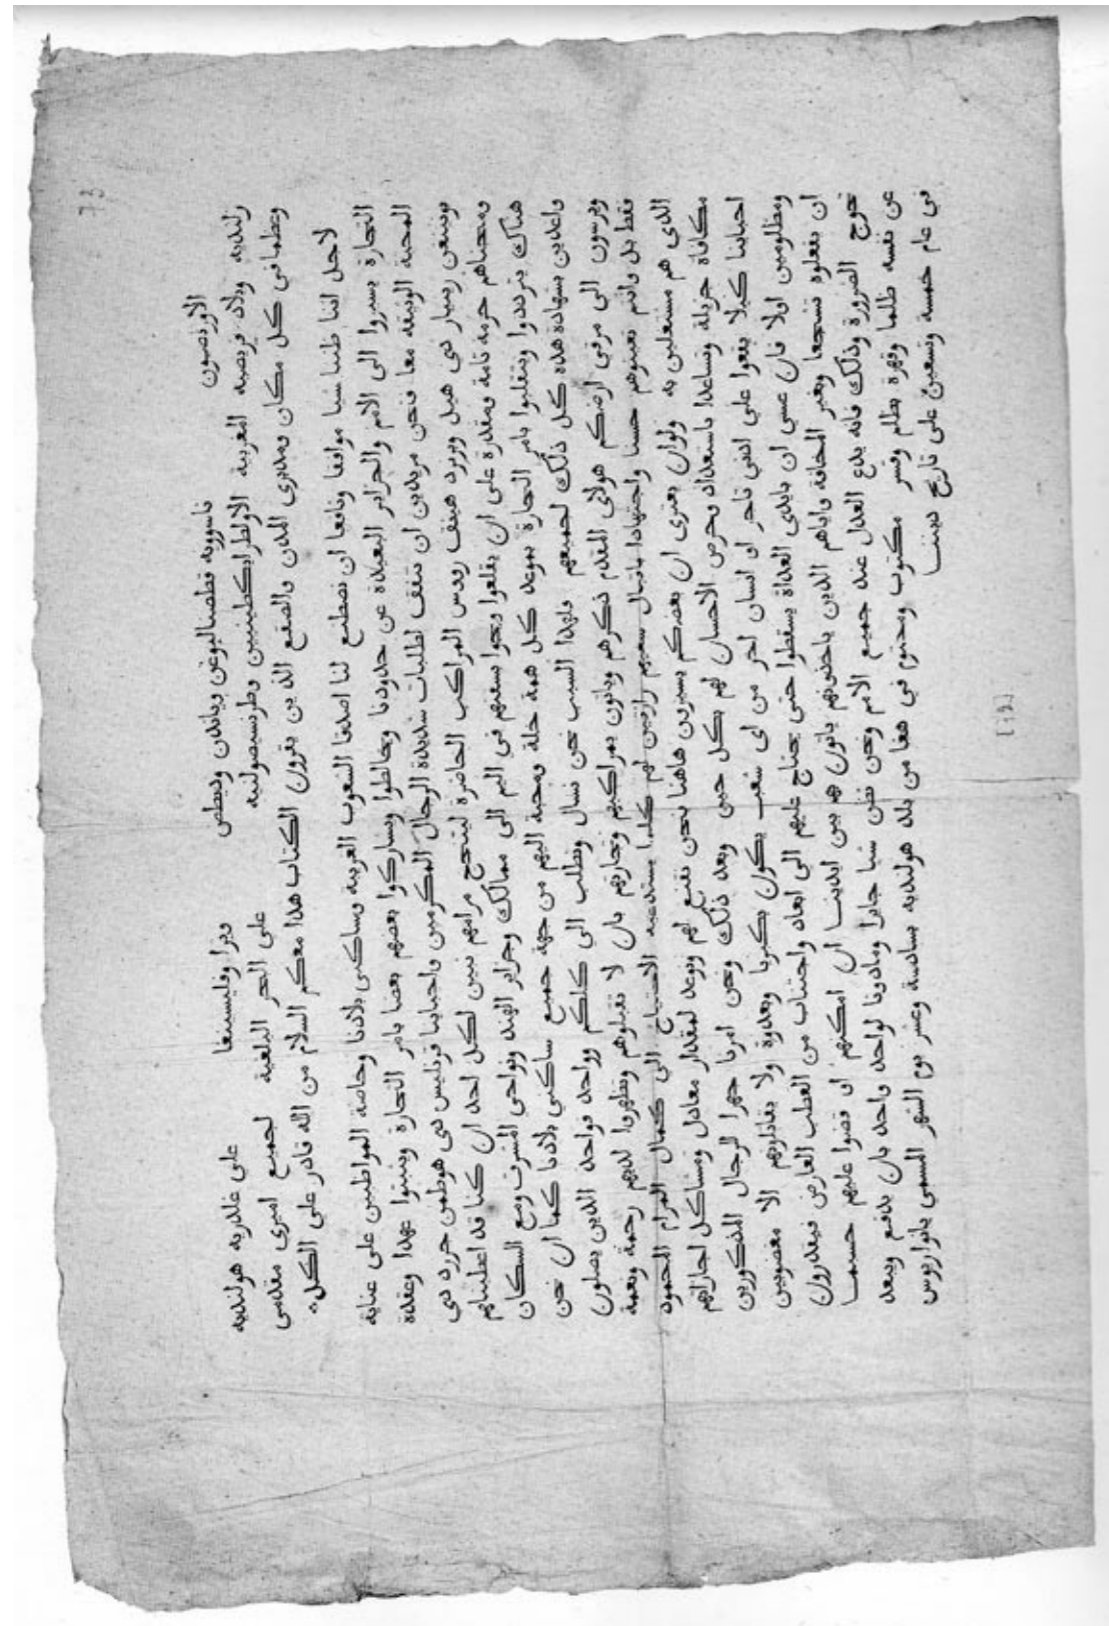 73
الاورنصون ناسوويه قطصنالبوغن وياندن وديطص ويرا وفليسنغا على غلدريه هولنديه
زلنديه وبلاد فريصيه الغربية الاولطرايكطينيين وطرنسيصولنيه على البحر البلغية لجميع اميري مقدمي
وعظما في كل مكان ومدبري المدن والصقع الذين يقرون الكتاب هذا معكم السلام من الله قادر على الكل
لاجل اننا ظننا شيا موافقا ونافعا ان نصطنع لنا اصدقا الشعوب الغريبة وساكني بلادنا وخاصة المواظبين على عناية
التجارة يسيروا الى الامم والجزاير البعيدة عن حدودنا ويخالطوا ويشاركوا بعضهم بعضا بامر التجارة ويثبتوا عهدا وعقدة
المحبة الوثيقه معا فنحن مريدين ان نتفق لطلبات شديدة الرجال المكرمين واحبابنا قرنليس دي هوطمن جررد دي
بونينغن رينيار دي هيل ويررد هينف رووس المراكب الحاضرة لينجح مرامهم نبين لكل احد ان كنا قد اعطيناهم
ومنحناهم حرمة تامة ومقدرة على ان يقلعوا وينحوا بسفنهم في اليم الى ممالك وجزاير الهند ونواحي المشرق ومع السكان
هناك يترددوا ويتقلبوا بامر التجارة بموعد كل همة خلة ومحبة اليهم من جهة جميع ساكني بلادنا كما ان نحن
واعدين بشهادة هذه كل ذلك لجميعهم ولهذا السبب نحن نسال ونطلب الى كلكم وواحد فواحد الذين يصلون
ويرسون الى مرفي ارضكم هولاي المقدم ذكرهم وياتون بمراكبهم وتجارتهم بان لا تقبلوهم وتظهروا لديهم رحمة ونعمة
فقط بل وانتم تعينوهم حسنا واجتهادا باقبال سعيهم رازقين لهم كلما يستدعيه الاحتياج الى كمال المرام المحمود
الذي هم مستغلين به ولوان يعتري ان بعضكم يسيرين هاهنا نحن نقنع لهم ونوعد لمقدار معادل ومشاكل اجازاتهم
مكافاة جزيلة وتساعدا باستعداد وحرص الاحسان لهم بكل حبي وبعد ذلك ونحن امرنا جهرا الرجال المذكورين
احبابنا كيلا يقعوا على ادني تاجر او انسان اخر من اي شعب يكون بكبريا وبعدوة ولا يقاتلوهم الا مغضوبين
ومظلومين اولا فان عسي ان بايدي العداة يسقطوا حتى يحتاج عليهم الى ابعاد واجتناب من الغضب العارض فيقدرون
ان يفعلوه تشجعا وبغير المخافة واياهم الذين ياخذونهم ياتون بهم بين ايدينا ان امكنهم او قضوا عليهم حسبما
تحوج الضرورة وذلك فانه يدع العدل عند جميع الامم ونحن نظن شيا جايزا وماذونا لواحد واحد بان يدفع ويبعد
عن نفسه ظلما وقهرة بظلم وقسر مكتوب ومختوم في هغا من بلد هولنديه بسادسة وعشر يوم الشهر المسمى يانواريوس
في عام خمسة وتسعين على تاريخ ديننا
[19]